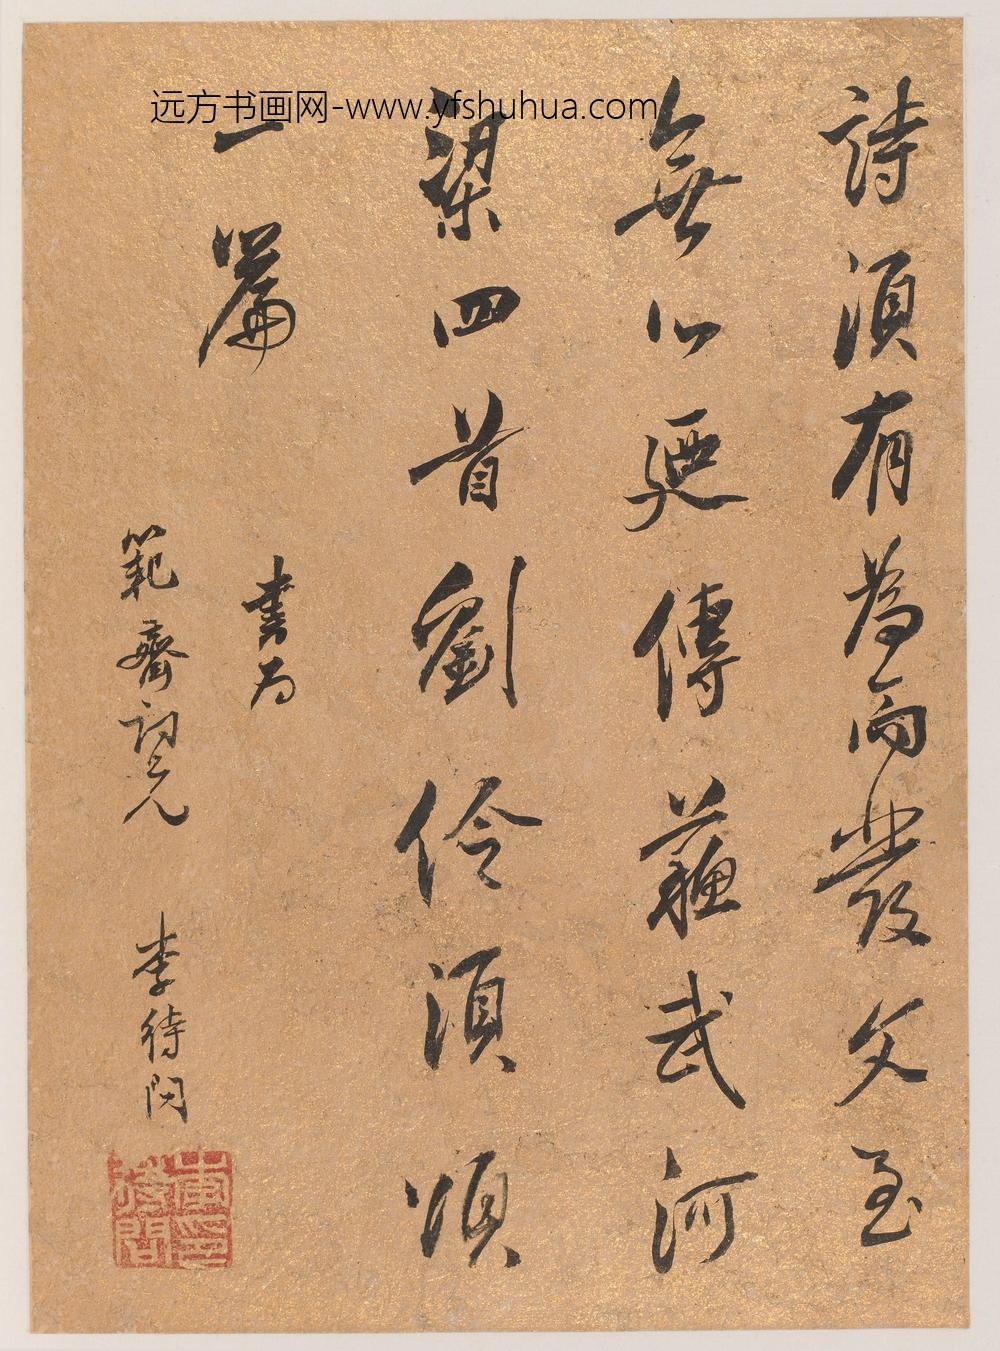 远方书画网-www.yfshuhua.com
詩須有為而發文至
無心更傳蘇武河
梁四首劉伶須頌
一篇
書為
範齋詞兄
李待問